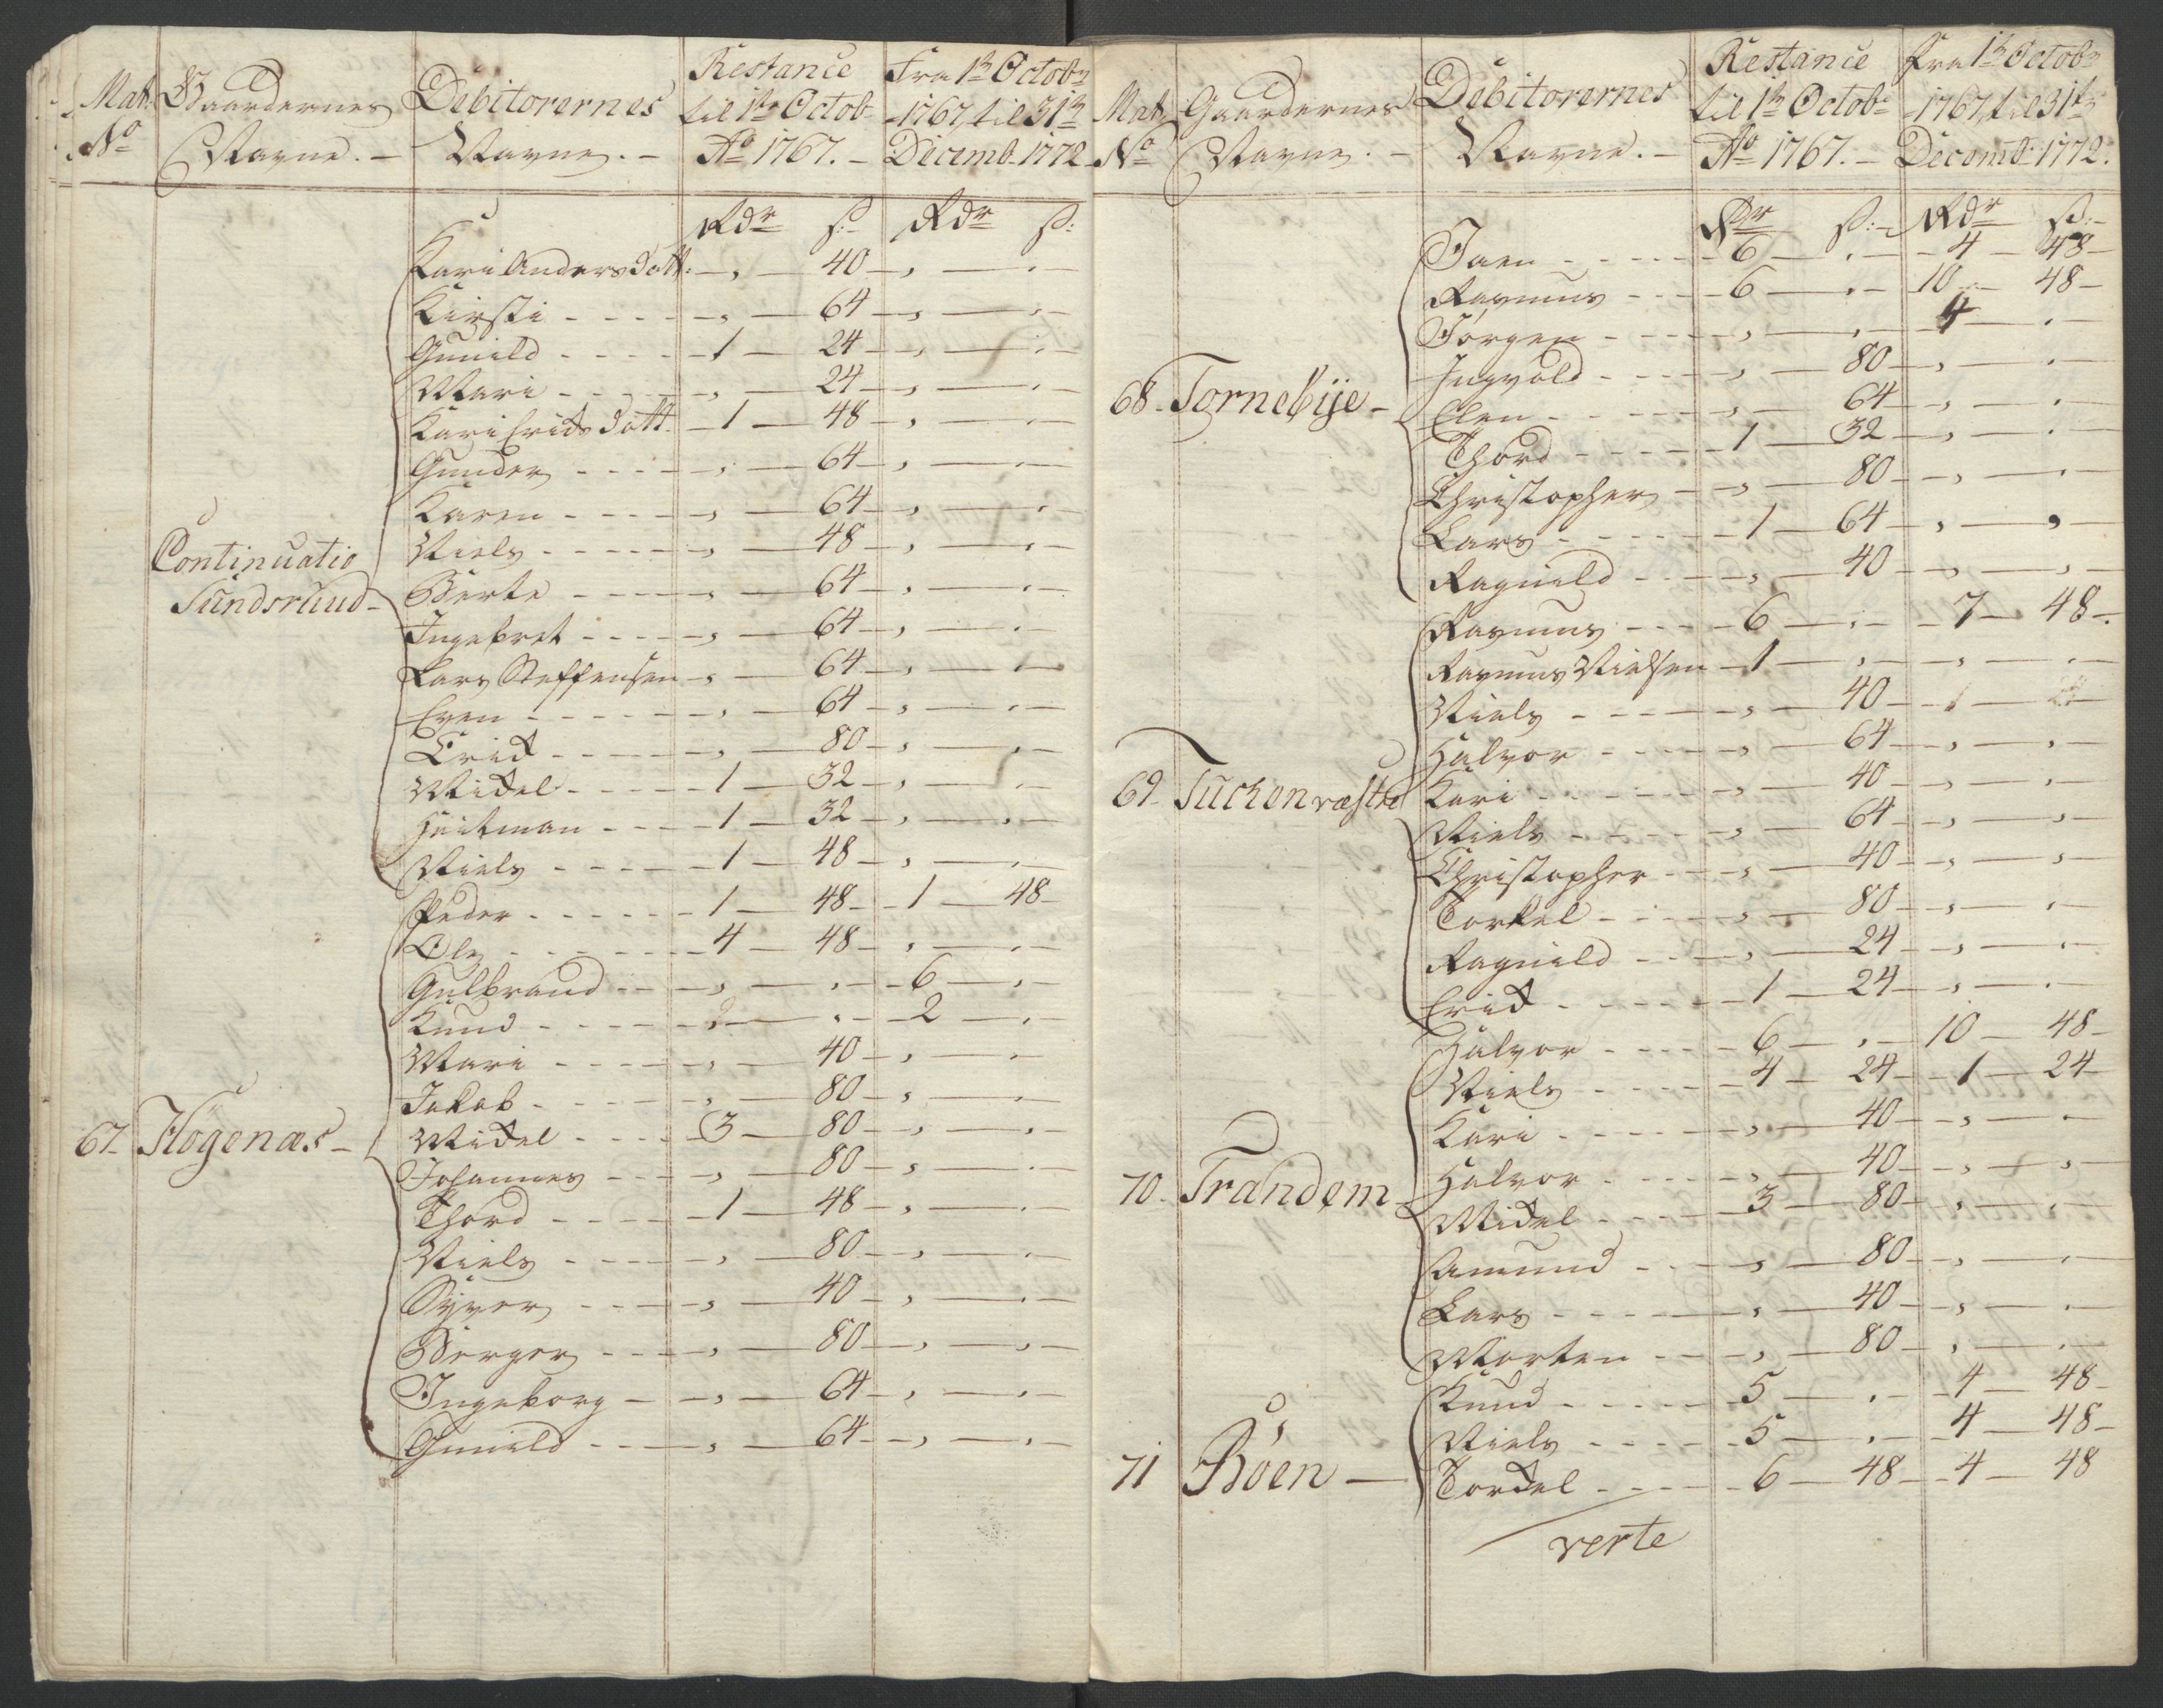 Mat: No
Gaardernes Navne. -
Debitorernes Navne. -
Restance til 1te Octob: Ao 1767. -
Fra 1te Octobr 1767, til 31te Decemb. 1772
Rdr ß: Rdr ß:
Continuatio Sundsruud -
Kari Andersdott: - , - 40 - , - . -
Kirsti - - - - , - 64 - , - . -
Gunild - - - - 1 - 24 - , - . -
Mari - - - - , - 24 - , - . -
Kari Erichsdott. - 1 - 48 - , - . -
Gunder - - - - , - 64 - , - . -
Karen - - - - , - 64 - , - . -
Niels - - - - , - 48 - , - . -
Berte - - - - , - 64 - , - . -
Ingebret - - - - , - 64 - , - . -
Lars Steffensen - , - 64 - , - . -
Even - - - - , - 64 - , - . -
Erich - - - - , - 80 - , - . -
Michel - - - - 1 - 32 - , - . -
Heitman - - - - 1 - 32 - , - . -
Niels - - - - 1 - 48 - , - . -
67. Flögenæs -
Peder - - - - 1 - 48 - 1 - 48 -
Ole - - - - 4 - 48 - , - . -
Gulbrand - - - , - . - 6 - . -
Knud - - - - 2 - . - 2 - . -
Mari - - - - , - 40 - , - . -
Jakob - - - - , - 80 - , - . -
Michel - - - - 3 - 80 - , - . -
Johannes - - - , - 80 - , - . -
Thord - - - - 1 - 48 - , - . -
Niels - - - - , - 80 - , - . -
Syver - - - - , - 40 - , - . -
Berger - - - - , - 80 - , - . -
Ingeborg - - , - 64 - , - . -
Gunild - - - - , - 64 - , - . -
Mat: No
Gaardernes Navne. -
Debitorernes Navne. -
Restance til 1te Octob: Ao 1767. -
Fra 1te Octobr 1767, til 31te Decemb: 1772.
Rdr ß: - Rdr ß: -
68. Tornebÿe -
Jaen - - - - 6 - . - 4 - 48 -
Rasmus - - - - 6 - . - 10 - 48 -
Jörgen - - - - , - . - 4 - . -
Ingvold - - - - , - 80 - , - . -
Elen - - - - , - 64 - , - . -
Thord - - - - 1 - 32 - , - . -
Christopher - , - 80 - , - . -
Lars - - - - 1 - 64 - , - , -
Ragnild - - - - , - 40 - , - , -
69. Tuchen væstre
Rasmus - - - - 6 - . - 7 - 48 -
Rasmus Nielsen - 1 - , - , - . -
Niels - - - - , - 40 - 1 - 24 -
Halvor - - - - , - 64 - , - , -
Kari - - - - , - 40 - , - . -
Niels - - - - , - 64 - , - , -
Christopher - - , - 40 - , - , -
Torkel - - - - , - 80 - , - . -
Ragnild - - - , - 24 - , - . -
Erich - - - - 1 - 24 - , - . -
70. Trandem
Halvor - - - - 6 - , - 10 - 48 -
Niels - - - - 4 - 24 - 1 - 24
Kari - - - - , - 40 - , - . -
Halvor - - - - , - 40 - , - , -
Michel - - - - 3 - 80 - , - . -
Amund - - - - , - 80 - , - . -
Lars - - - - , - 40 - , - . -
Morten - - - - , - 80 - , - . -
71 Böen -
Knud - - - - 5 - . - 4 - 48 -
Niels - - - - 5 - . - 4 - 48 -
Torchel - - - - 6 - 48 - 4 - 48
verte